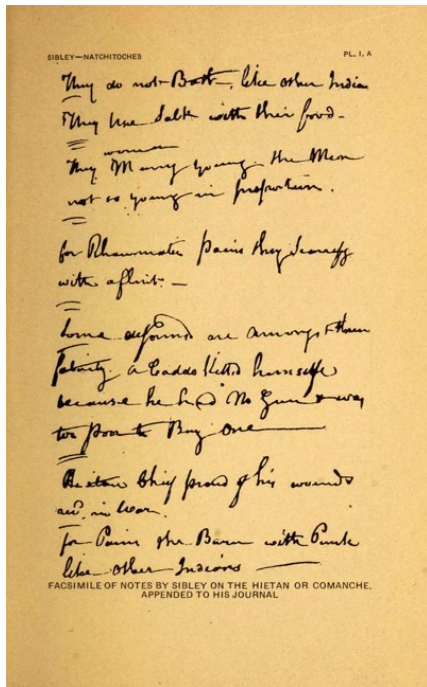 SIBLEY—NATCHITOCHES
PL. I, A
They do not Bath, like other Indian
They Use Salt with their food -
women
They Marry young the Men
not so young in proportion.
for Rheumatic pains they
with a flint. —
Some are amongst them
a Caddo Killed himself
because he had No Gun & was
too poor to Buy one
Hietan Chief proud of his wounds
in War.
for Pains the Burn with Punk
like other Indians
FACSIMILE OF NOTES BY SIBLEY ON THE HIETAN OR COMANCHE,
APPENDED TO HIS JOURNAL